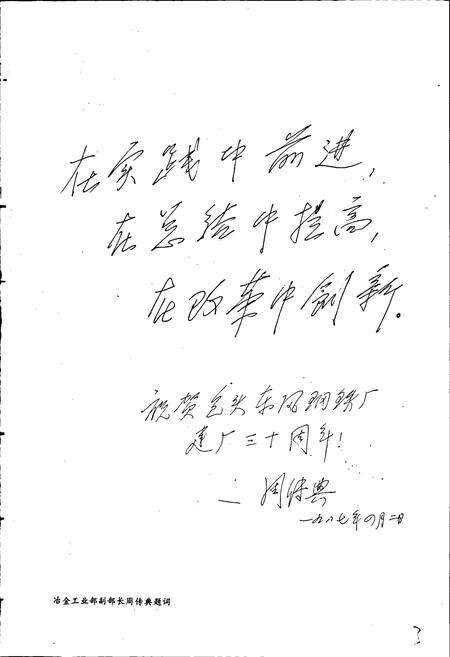 在实践中前进，
在总结中提高，
在改革中创新。
祝贺包头东风钢铁厂
建厂三十周年！
周传典
一九八七年四月二日
冶金工业部副部长周传典题词
3